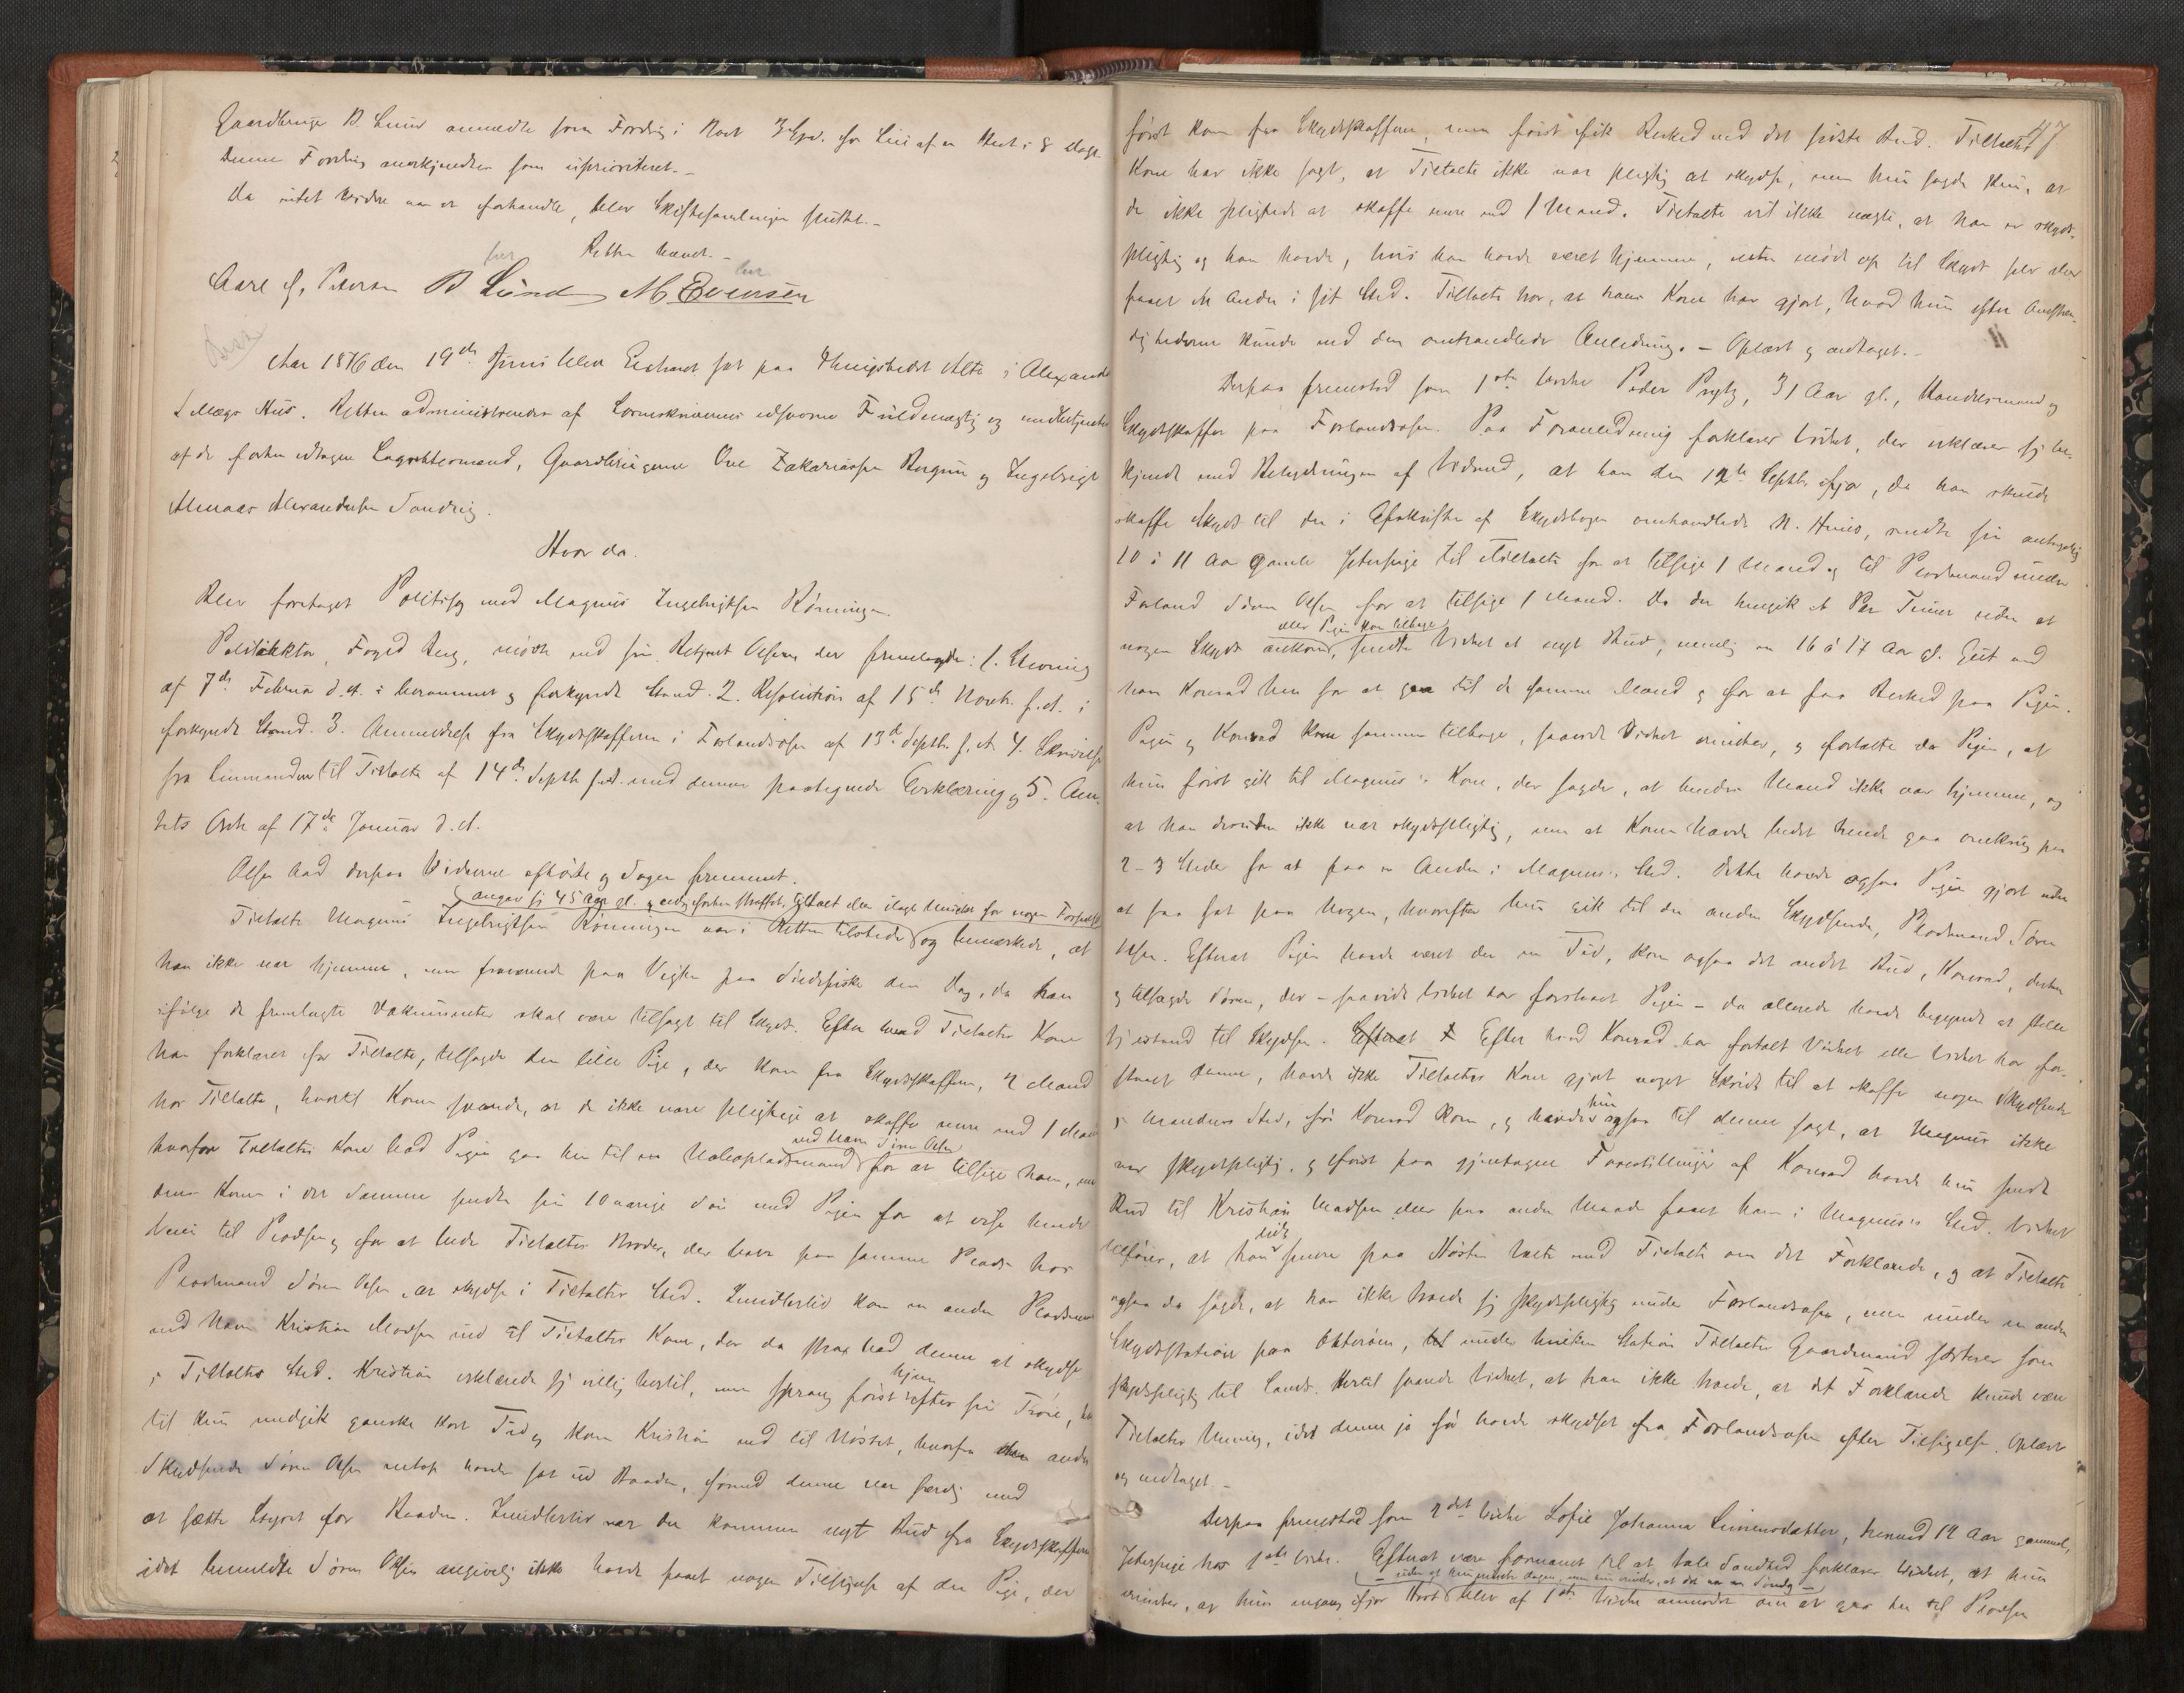 Gaardbruger B. Lund anmeldte som Fordring i Boet 3 Spd. for Leie af en Hest i 8 Dage.
Denne Fordring anerkjendtes som uprioriteret.-
Da intet videre var at forhandle, blev Skiftesamlingen sluttet.-
Retten hævet.-
Carl J. Petersen B Lund M Evensen
Aar 1876 den 19de Juni blev Extraret sat paa Thingstedet Alte i Alexander
Hus. Retten administreredes af Sorenskriverens edsvorne Fuldmægtig og medbetjentes
af de forhen edtagne Lagrettesmænd, Gaardbrugerne Ove Zakariassen Bergum og Ingebrigt
Almaas Alexandersen Sandvig.
Hvor da.
Blev foretaget Politisag mod Magnus Ingebrigtsen Rønningen.
Politiaktor, Foged Berg, mødte ved sin Betjent Olsen der fremlagde: 1. Stevning
af 7de Februar d.A. i berammet og forkyndt Stand. 2. Resolution af 15de Novbr. f.A. i
forkyndt Stand. 3. Anmeldelse fra Skydsskafferen i Forlandsosen af 13de Septbr. f.A. 4. Skrivelse
fra Lensmanden til Tiltalte af 14de Septb f.A. med dennes paategnede Erklæring og 5. Am-
tets Ordr af 17de Januar d.A.
Olsen bad derpaa Vidnerne afhørte og Sagen fremmet.
angav sig 45 Aar gl. og ei forhen straffet, tiltalt eller ilagt Mulkt for nogen Forseelse
Tiltalte Magnus Ingebrigtsen Rønningen var i Retten tilstede og bemærkede, at
han ikke var hjemme, men fraværende paa Vegten paa Sildefiske den Dag, da han
ifølge de fremlagte Dokumenter skal være tilsagt til Skyds. Efter hvad Tiltaltes Kone
har forklaret for Tiltalte, tilsagde den lille Pige, der kom fra Skydsskafferen, 2 Mand
hos Tiltalte, hvortil Konen svarede, at de ikke vare pligtige at skaffe mere end 1 Mand
hvorfor Tiltaltes Kone bad Pigen gaa hen til en Nabopladsmand for at tilsige ham, men
ved Navn Søren Olsen
denne Konen i det Samme sendte sin 10 aarige Søn med Pigen for at vise hende
Veien til Pladsen og for at bede Tiltaltes Broder, der boer paa samme Plads hos
Pladsmand Søren Olsen, at skydse i Tiltaltes Sted. Imidlertid kom en anden Pladsmand
ved Navn Kristian Madsen ind til Tiltaltes Kone, der da strax bad denne at skydse
i Tiltaltes Sted. Kristian erklærede sig villig hertil, men sprang først hjem efter sin Trøie,
til hun medgik ganske kort Tid og kom Kristian ned til Nøstet, hvorfra den anden
Skydsende Søren Olsen netop havde sat ud Baaden, førend denne var færdig med
at sætte Styret for Baaden. Imidlertid var der kommen nyt Bud fra Skydsskafferen
idet bemeldte Søren Olsen angivelig ikke havde faaet nogen Tilsigelse af den Pige, der
47
først kom fra Skydsskafferen, men først fik Besked med det sidste Bud. Tiltaltes
Kone har ikke sagt, at Tiltalte ikke var pligtig at skydse, men hun sagde kun, at
de ikke pligtede at skaffe mere end 1 Mand. Tiltalte vil ikke nægte, at han er skyds-
pligtig og han havde, hvis han havde været hjemme, enten mødt op til Skyds selv eller
faaet en Anden i sit Sted. Tiltalte tror, at hans Kone har gjort, hvad hun efter Omstæn-
dighederne kunde ved den omhandlede Anledning. - Oplæst og vedtaget.-
Derpaa fremstod som 1ste Vidne Peder Prytz, 31 Aar gl., Handelsmand og
Skydsskaffer paa Forlandsosen. Paa Foranledning forklarer Vidnet, der erklærer sig be-
kjendt med Betydningen af Vidneed, at han den 12te Septbr. ifjor, da han skulde
skaffe Skyds til den i Afskriften af Skydsbogen omhandlede N. Huus, sendte sin antagelig
10 à 11 Aar gamle Jeterpige til Tiltalte for at tilsige 1 Mand og til Pladsmand under
Forland Søren Olsen for at tilsige 1 Mand. Da der hengik et Par Timer uden at
eller Pigen kom tilbage
nogen Skyds ankom, sendte Vidnet et nyt Bud, nemlig en 16 à 17 Aar gl. Gut ved
Navn Konrad hen for at gaa til de samme Mænd og for at faa Besked paa Pigen.
Pigen og Konrad kom sammen tilbage, saavidt Vidnet erindrer, og fortalte da Pigen, at
hun først gik til Magnus's Kone, der sagde, at hendes Mand ikke var hjemme, og
at han desuden ikke var skydspligtig, men at Konen havde budet hende gaa omkring paa
2-3 Steder for at faa en Anden i Magnus's Sted. Dette havde ogsaa Pigen gjort uden
at faa fat paa Nogen, hvorefter hun gik til den anden Skydsende, Pladsmand Søren
Olsen. Efterat Pigen havde været der en Tid, kom ogsaa det andet Bud, Konrad, derhen
og tilsagde Søren, der - saavidt Vidnet har forstaaet Pigen - da allerede havde begyndt at stelle
sig istand til Skydsen. Efter hvad Konrad har fortalt Vidnet eller Vidnet har for-
staaet denne, havde ikke Tiltaltes Kone gjort noget Skridt til at skaffe nogen Skydsende
i Mandens Sted, før Konrad kom, og havde hun ogsaa til denne sagt, at Magnus ikke
var skydspligtig, og først paa gjentagne Forestillinger af Konrad havde hun sendt
Bud til Kristian Madsen eller paa anden Maade faaet ham i Magnus's Sted. Vidnet
tilføier, at han senere paa Høsten talte med Tiltalte om det Forklarede, og at Tiltalte
ogsaa da sagde, at han ikke troede sig skydspligtig under Forlandsosen, men under en anden
Skydsstation paa Otterøen, under hvilken Station Tiltaltes Gaardmand sorterer som
skydspligtig til Lands. Hertil svarede Vidnet, at han ikke troede, at det Forklarede kunde være
Tiltaltes Mening, idet denne jo før havde skydset fra Forlandsosen efter Tilsigelse. Oplæst
og vedtaget -
Derpaa fremstod som 2det Vidne Sofie Johanna Simonsdatter, henved 12 Aar gammel,
Jeterpige hos 1ste Vidne. Efterat være formanet til at tale Sandhed forklarer Vidnet, at hun
- uden at hun mindes Dagen, men hun erindrer, at det var en Søndag -
erindrer, at hun engang ifjor Høst blev af 1ste Vidne anmodet om at gaa hen til Pladsen